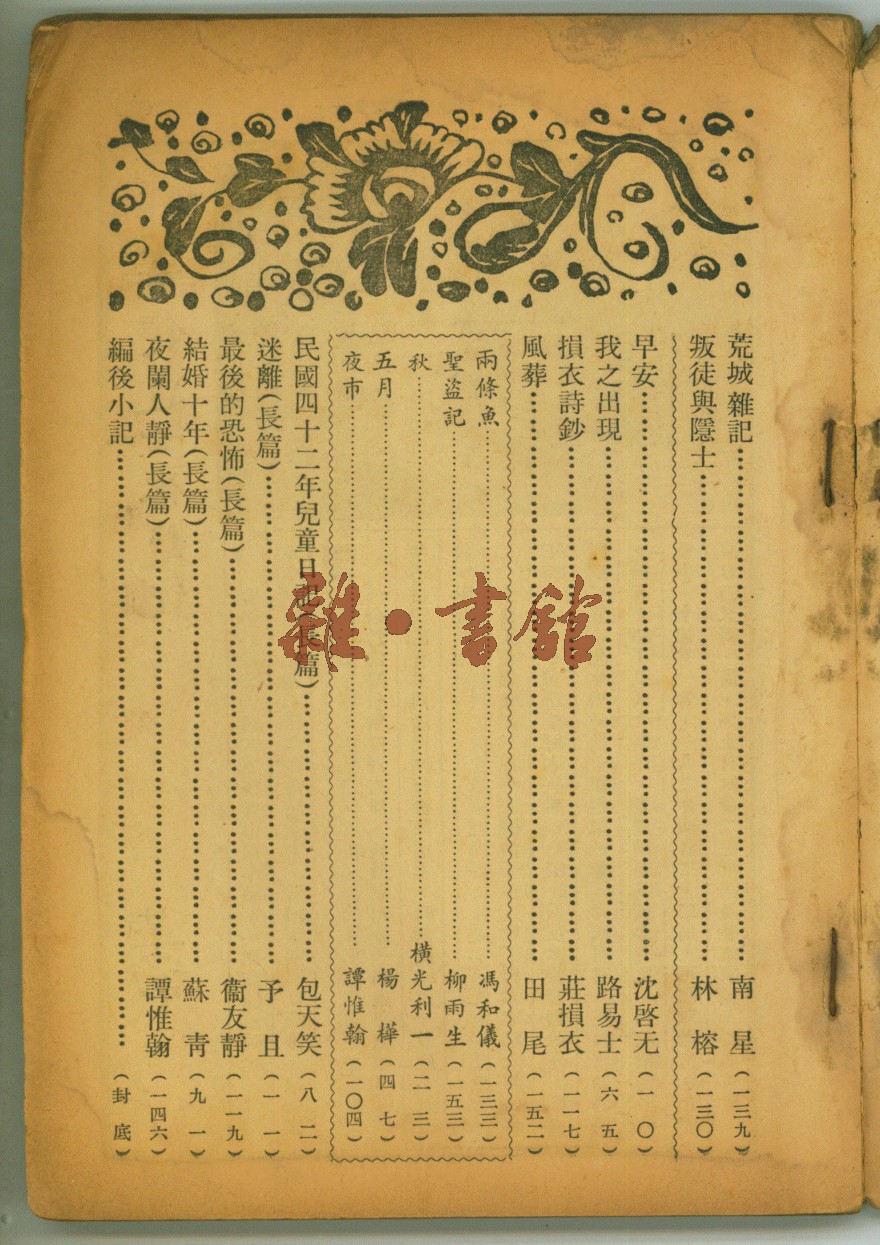 荒城雜記……南星(一三九)
叛徒與隱士……林榕(一三〇)
早安……沈啓无(一〇)
我之出現……路易士(六五)
損衣詩鈔……莊損衣(一一七)
風葬……田尾(一五二)
兩條魚……馮和儀(一三三)
聖盜記……柳雨生(一五三)
秋……橫光利一(二三)
五月……楊樺(四七)
夜市……譚惟翰(一〇四)
民國四十二年兒童日記(長篇)……包天笑(八二)
迷離(長篇)……予且(一一)
最後的恐怖(長篇)……衞友靜(一一九)
結婚十年(長篇)……蘇靑(九一)
夜闌人靜(長篇)……譚惟翰(一四六)
編後小記……(封底)
雜·書館